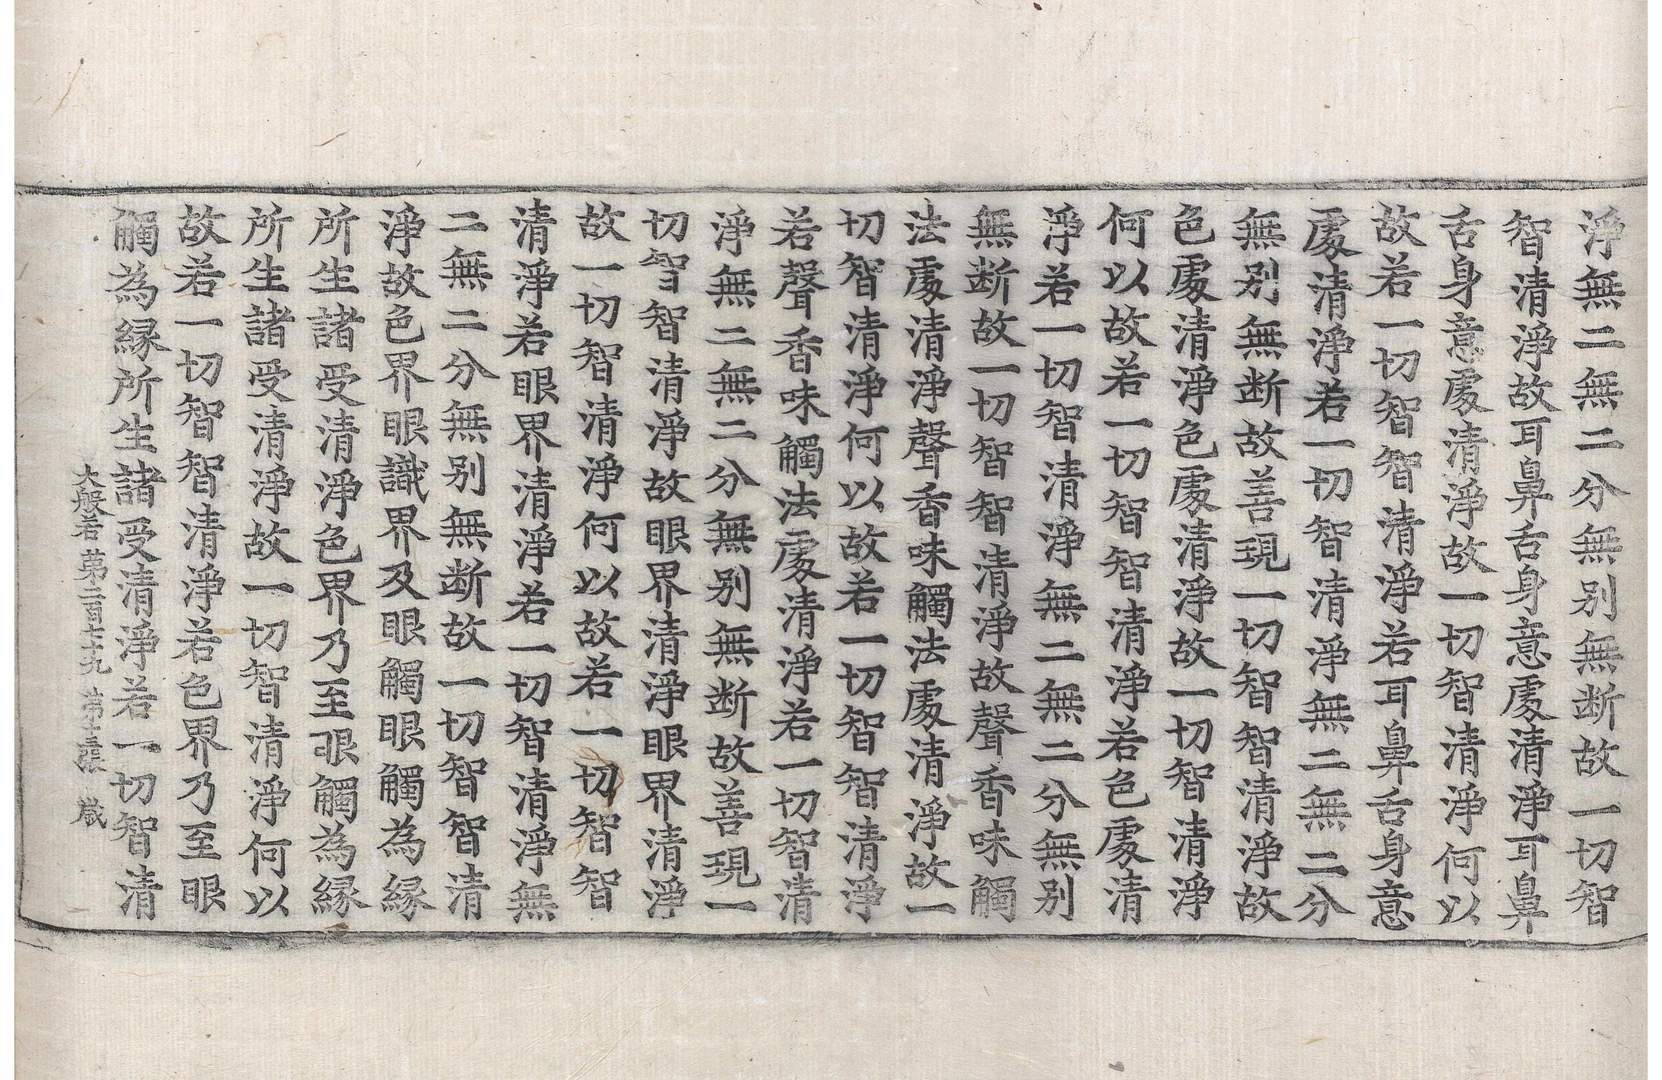 淨無二無二分無别無断故一切智
智清淨故耳鼻舌身意處清淨耳鼻
舌身意處清淨故一切智清淨何以
故若一切智智清淨若耳鼻舌身意
處清淨若一切智清淨無二無二分
無别無断故善現一切智智清淨故
色處清淨色處清淨故一切智清淨
何以故若一切智智清淨若色處清
淨若一切智清淨無二無二分無别
無断故一切智智清淨故聲香味觸
法處清淨聲香味觸法處清淨故一
切智清淨何以故若一切智智清淨
若聲香味觸法處清淨若一切智清
淨無二無二分無别無断故善現一
切智智清淨故眼界清淨眼界清淨
故一切智清淨何以故若一切智智
清淨若眼界清淨若一切智清淨無
二無二分無别無断故一切智智清
淨故色界眼識界及眼觸眼觸為縁
所生諸受清淨色界乃至眼觸為縁
所生諸受清淨故一切智清淨何以
故若一切智智清淨若色界乃至眼
觸為縁所生諸受清淨若一切智清
大般若第二百七十九 第張